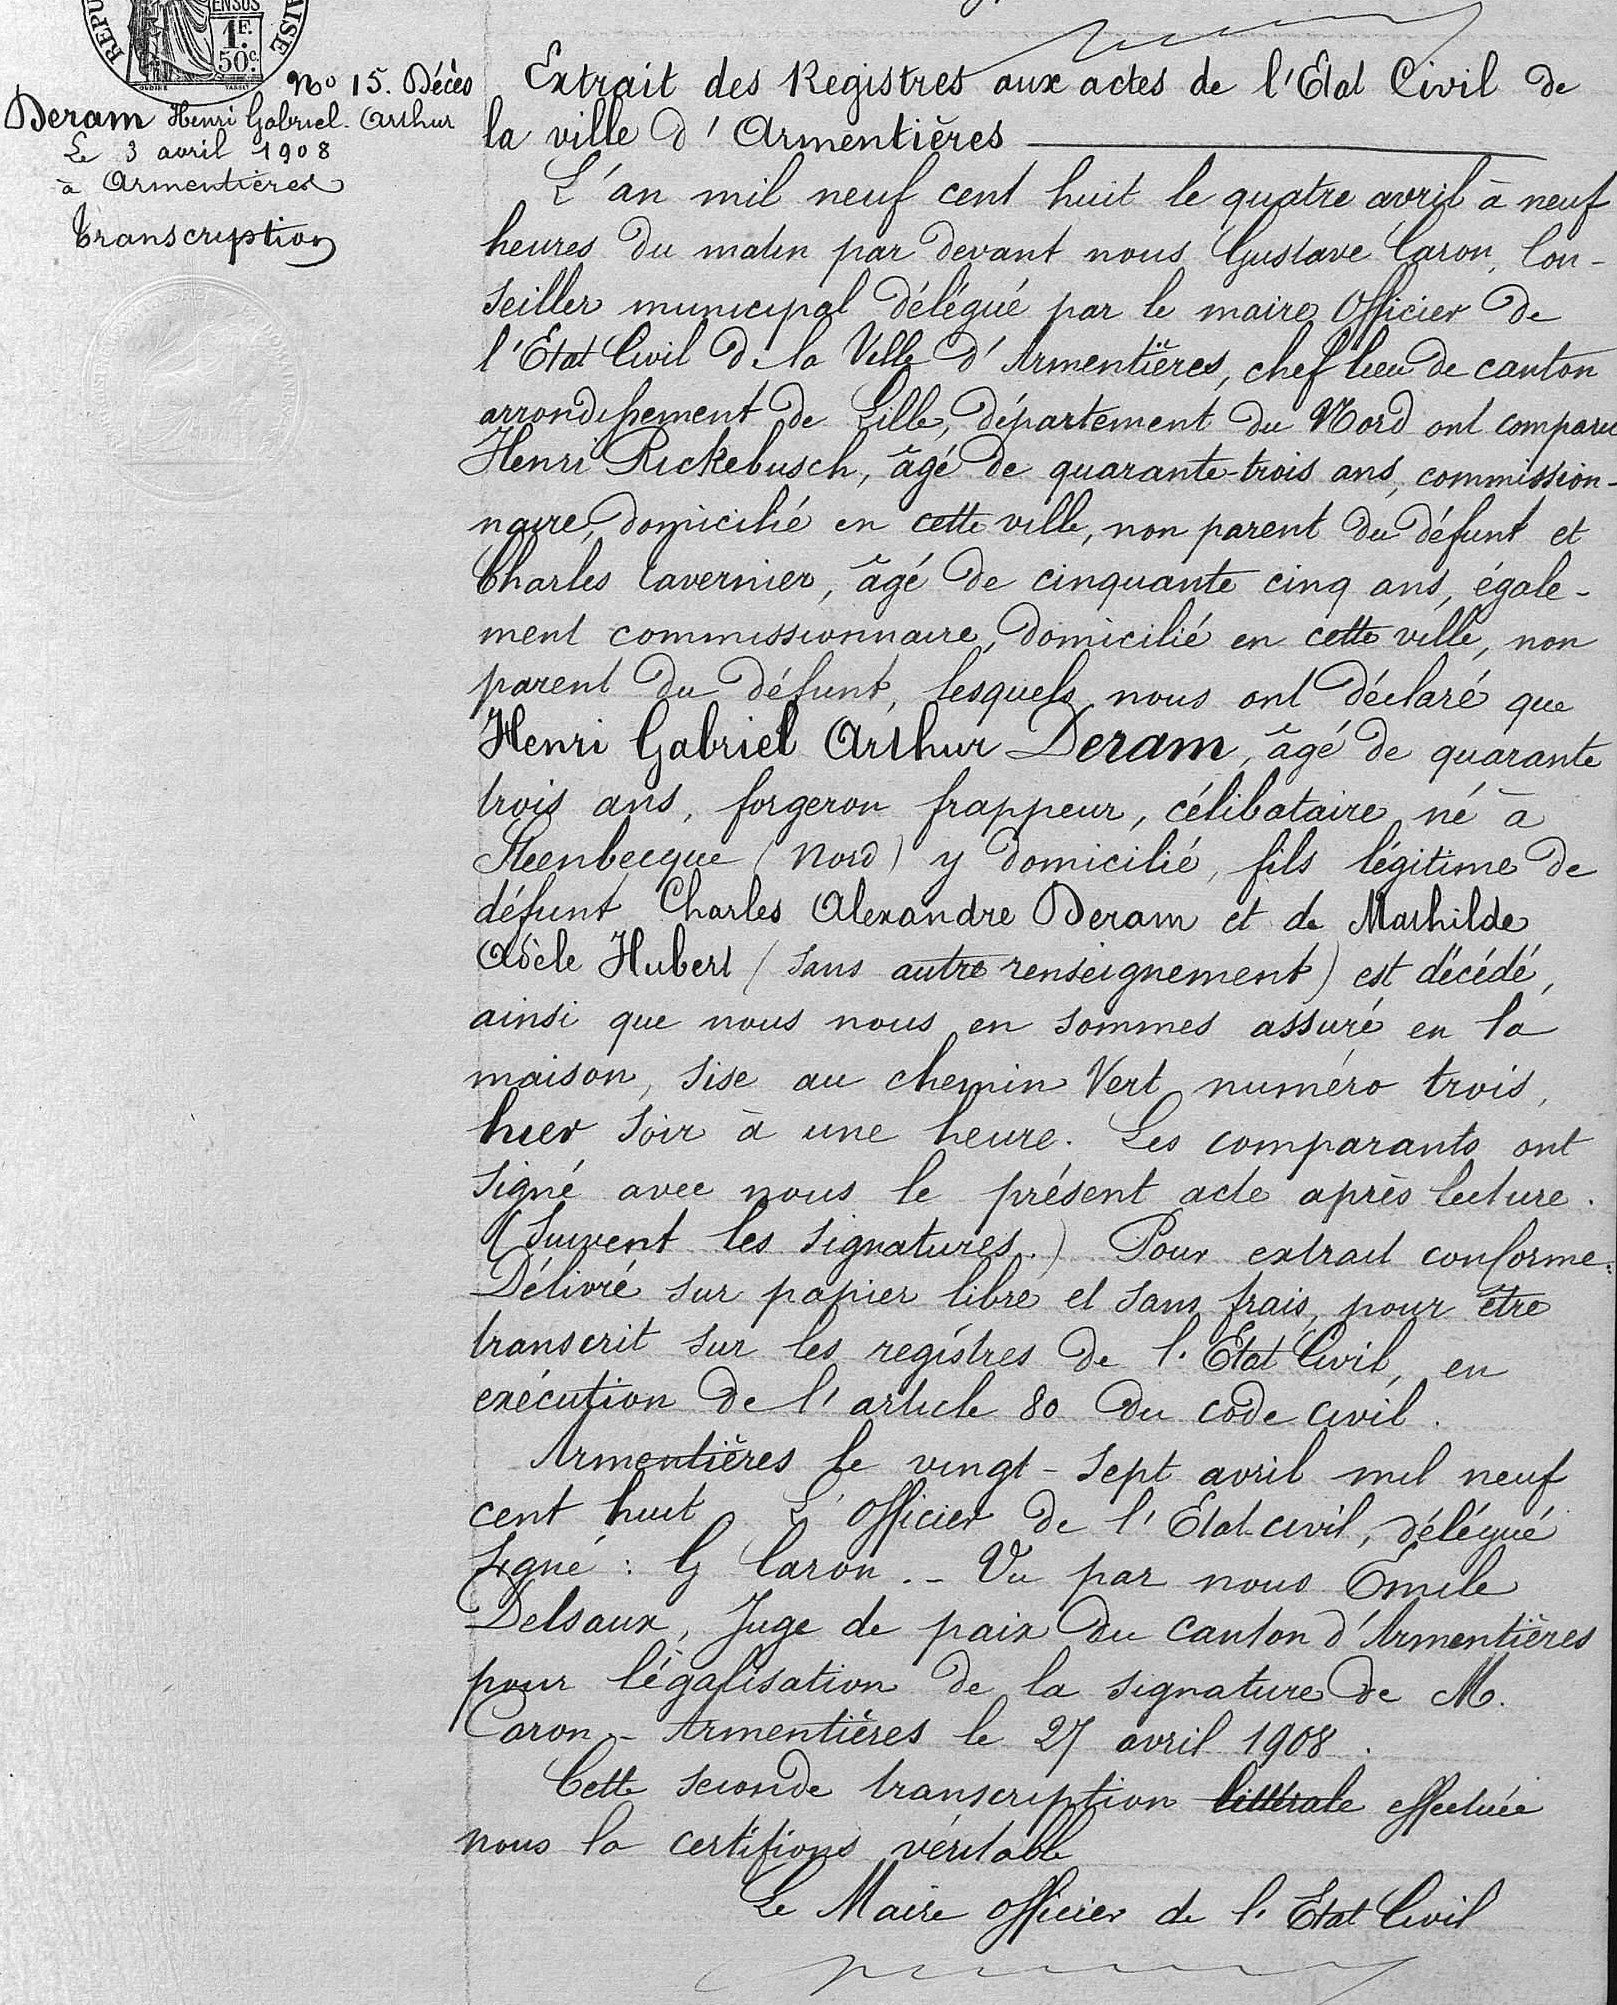 REPU
AISE
ENSUS
1F.
50c.
No 15. Décès
Deram Henri Gabriel. Arthur
Le 3 avril 1908
à Armentières
Transcription
Extrait des Registres aux actes de l'Etat Civil de
la ville d'Armentières
L'an mil neuf cent huit le quatre avril à neuf
heures du matin par devant nous Gustave Caron, Con-
seiller municipal délégué par le maire Officier de
l'Etat Civil de la Ville d'Armentières, chef lieu de canton
arrondissement de Lille, département du Nord ont comparu
Henri Rickebusch, âgé de quarante-trois ans, commission-
naire, domicilié en cette ville, non parent du défunt et
Charles Tavernier, âgé de cinquante cinq ans, égale-
ment commissionnaire, domicilié en cette ville, non
parent du défunt, lesquels nous ont déclaré que
Henri Gabriel Arthur Deram, âgé de quarante
trois ans, forgeron frappeur, célibataire né à
Steenbecque (Nord) y domicilié, fils légitime de
défunt Charles Alexandre Deram et de Mathilde
Adèle Hubert (sans autre renseignement) est décédé,
ainsi que nous nous en sommes assuré en la
maison, sise au chemin Vert numéro trois,
hier soir à une heure. Les comparants ont
signé avec nous le présent acte après lecture.
(Suivent les signatures.) Pour extrait conforme:
Délivré sur papier libre et sans frais, pour être
transcrit sur les registres de l'Etat Civil, en
exécution de l'article 80 du code civil.
Armentières le vingt-sept avril mil neuf
cent huit L'officier de l'Etat-civil, délégué
Signé: G Caron.- Vu par nous Emile
Delsaux, Juge de paix du canton d'Armentières
pour légalisation de la signature de M.
Caron - Armentières le 27 avril 1908.
Cette seconde transcription littérale effectuée
nous la certifions véritable
Le Maire officier de l'Etat Civil